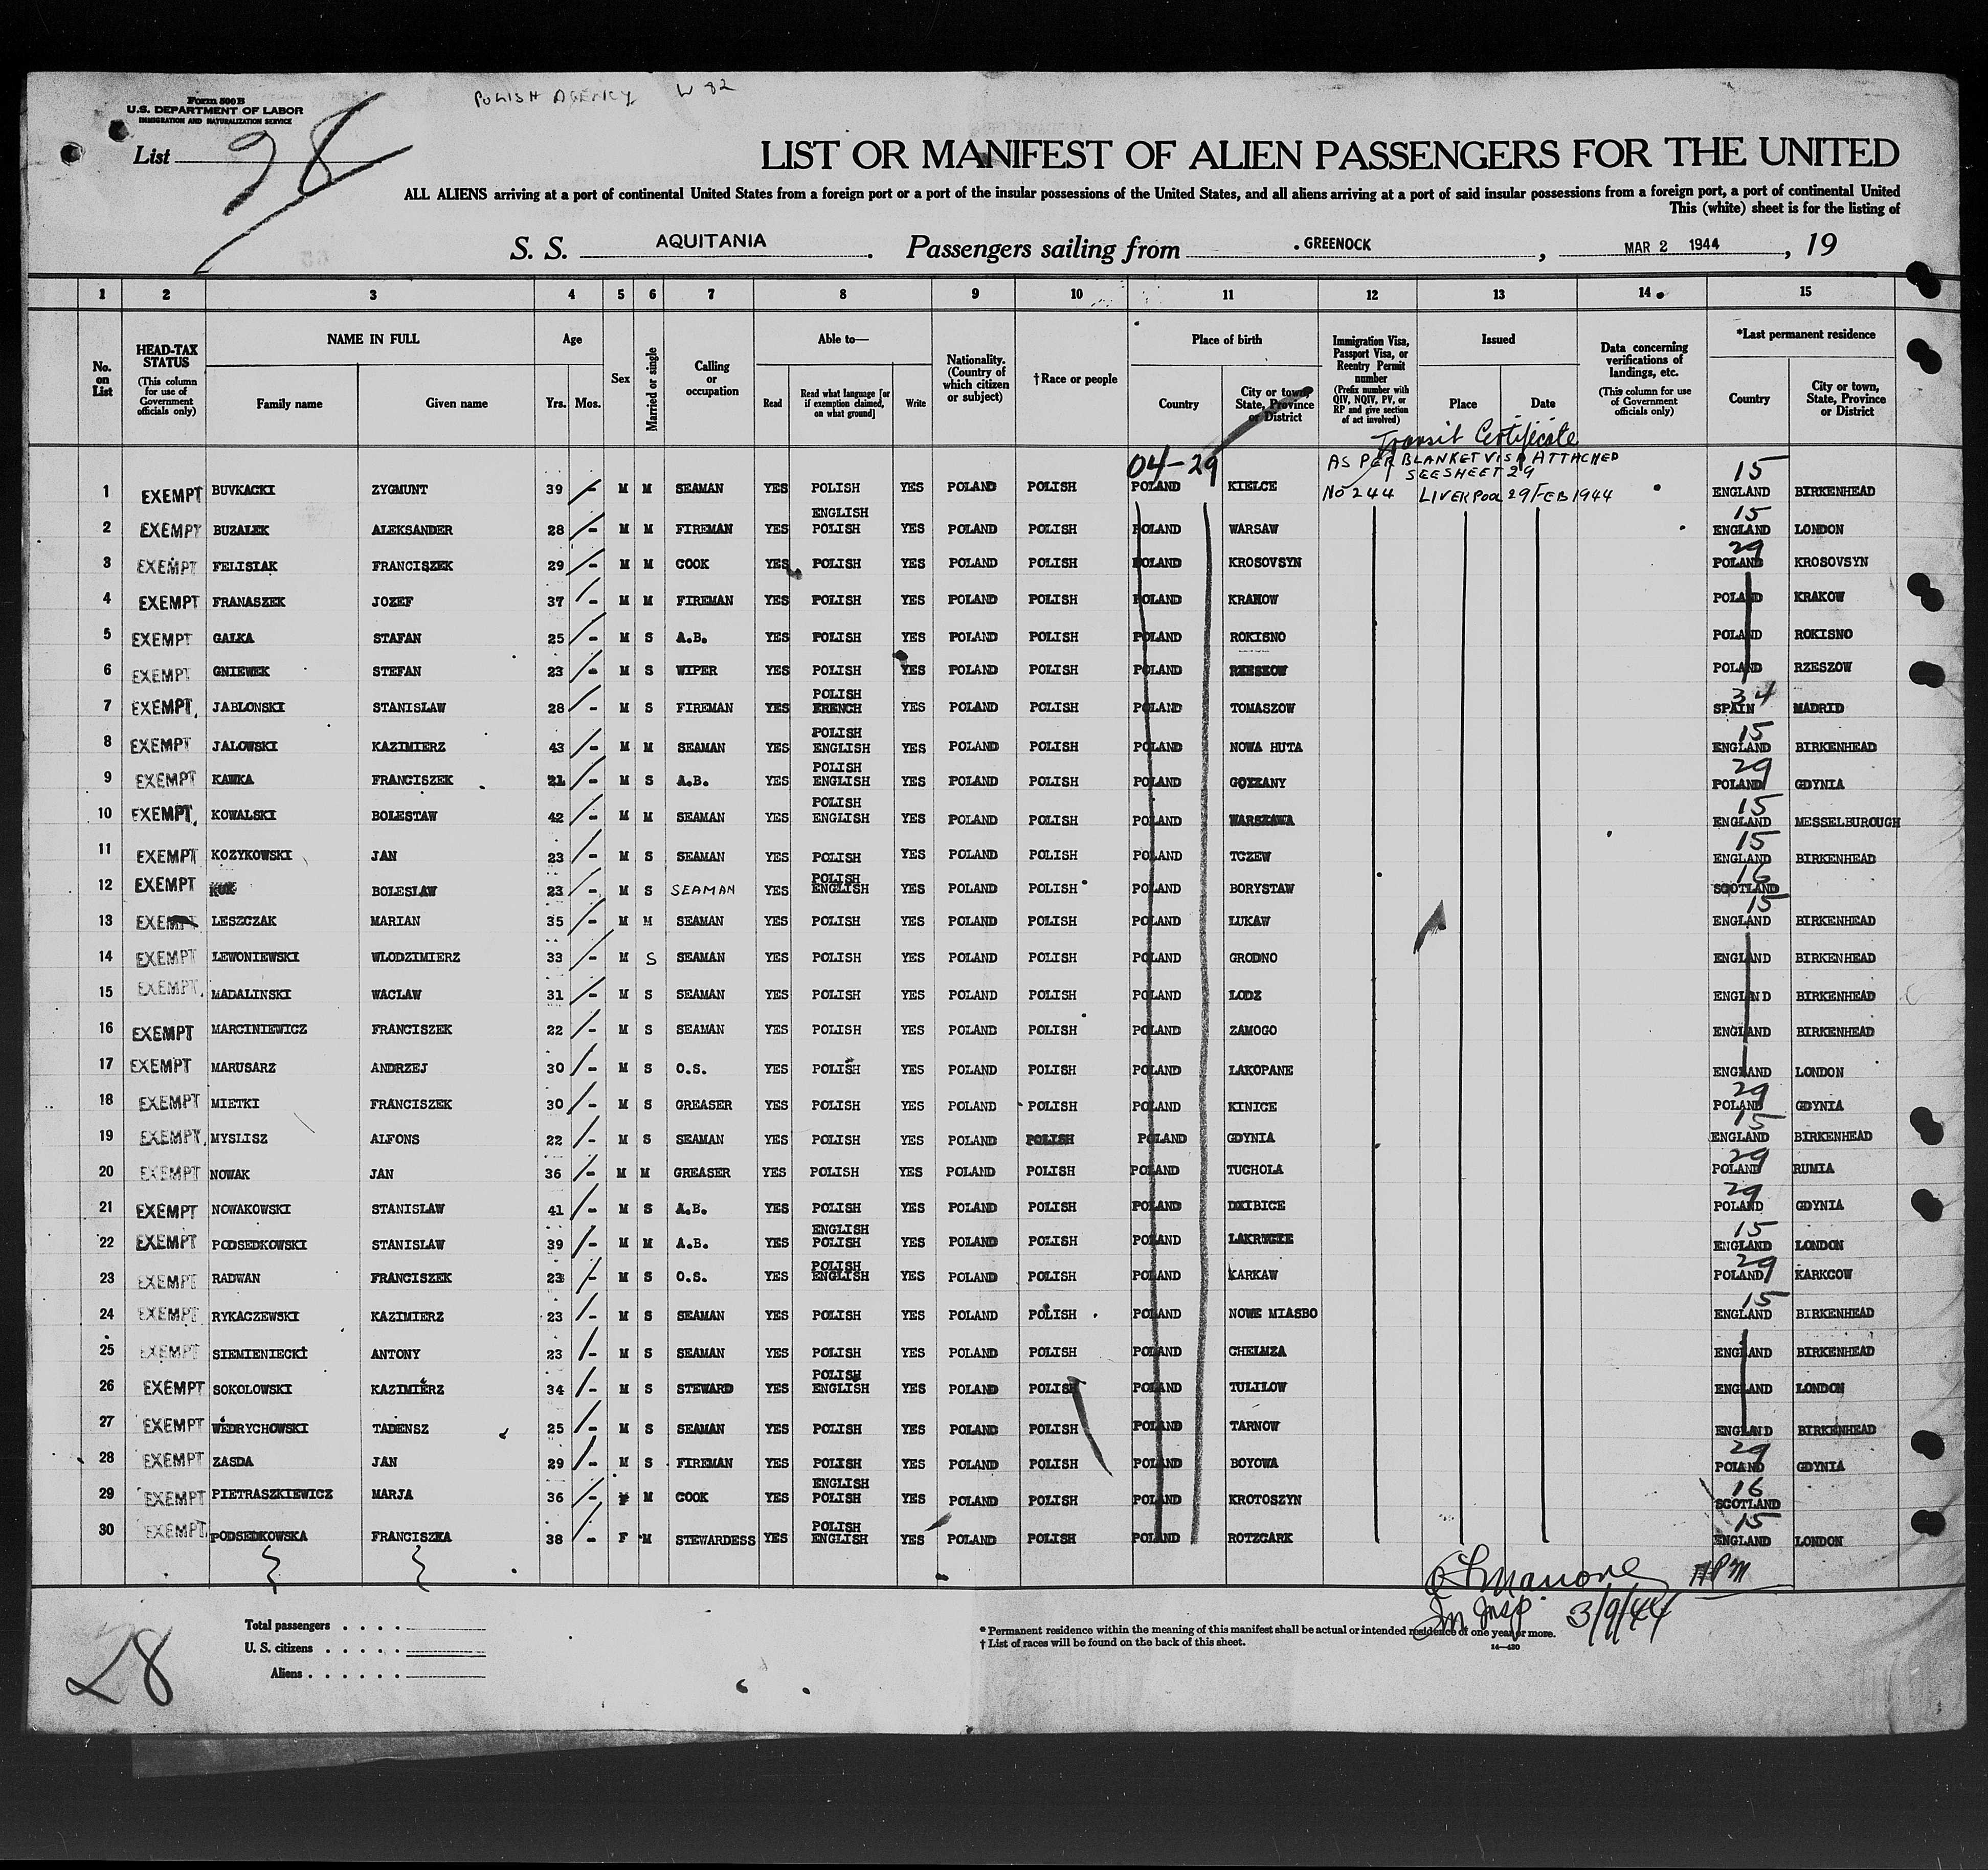 POLISH AGENCY W 82
Form 500 B
U.S. DEPARTMENT OF LABOR
IMMIGRATION AND NATURALIZATION SERVICE
List 28
LIST OR MANIFEST OF ALIEN PASSENGERS FOR THE UNITED
ALL ALIENS arriving at a port of continental United States from a foreign port or a port of the insular possessions of the United States, and all aliens arriving at a port of said insular possessions from a foreign port, a port of continental United
This (white) sheet is for the listing of
S. S. AQUITANIA. Passengers sailing from GREENOCK, MAR 2 1944, 19
1 2 3 4 5 6 7 8 9 10 11 12 13 14 15
No. on List
HEAD-TAX STATUS (This column for use of Government officials only)
NAME IN FULL
Family name Given name
Age
Yrs. Mos.
Sex
Married or single
Calling or occupation
Able to—
Read Read what language [or if exemption claimed, on what ground] Write
Nationality. (Country of which citizen or subject)
† Race or people
Place of birth
Country City or town, State, Province or District
Immigration Visa, Passport Visa, or Reentry Permit number (Prefix number with QIV, NQIV, PV, or RP and give section of act involved)
Issued
Place Date
Data concerning verifications of landings, etc. (This column for use of Government officials only)
*Last permanent residence
Country City or town, State, Province or District
Transit Certificate
04-29 AS PER BLANKET VISA ATTACHED
SEE SHEET 29
15
1 EXEMPT BUVKACKI ZYGMUNT 39 - M M SEAMAN YES POLISH YES POLAND POLISH POLAND KIELCE No 244 LIVERPOOL 29 FEB 1944 ENGLAND BIRKENHEAD
2 EXEMPT BUZALEK ALEKSANDER 28 - M M FIREMAN YES ENGLISH POLISH YES POLAND POLISH POLAND WARSAW 15 ENGLAND LONDON
3 EXEMPT FELISIAK FRANCISZEK 29 - M M COOK YES POLISH YES POLAND POLISH POLAND KROSOVSYN 29 POLAND KROSOVSYN
4 EXEMPT FRANASZEK JOZEF 37 - M M FIREMAN YES POLISH YES POLAND POLISH POLAND KRAKOW POLAND KRAKOW
5 EXEMPT GALKA STAFAN 25 - M S A.B. YES POLISH YES POLAND POLISH POLAND ROKISNO POLAND ROKISNO
6 EXEMPT GNIEWEK STEFAN 23 - M S WIPER YES POLISH YES POLAND POLISH POLAND RZESZOW POLAND RZESZOW
7 EXEMPT JABLONSKI STANISLAW 28 - M S FIREMAN YES POLISH FRENCH YES POLAND POLISH POLAND TOMASZOW 34 SPAIN MADRID
8 EXEMPT JALOWSKI KAZIMIERZ 43 - M M SEAMAN YES POLISH ENGLISH YES POLAND POLISH POLAND NOWA HUTA 15 ENGLAND BIRKENHEAD
9 EXEMPT KAWKA FRANCISZEK 21 - M S A.B. YES POLISH ENGLISH YES POLAND POLISH POLAND 29 POLAND GDYNIA
10 EXEMPT KOWALSKI BOLESTAW 42 - M M SEAMAN YES POLISH ENGLISH YES POLAND POLISH POLAND WARSZAWA 15 ENGLAND MESSELBUROUGH
11 EXEMPT KOZYKOWSKI JAN 23 - M S SEAMAN YES POLISH YES POLAND POLISH POLAND TCZEW 15 ENGLAND BIRKENHEAD
12 EXEMPT BOLESLAW 23 - M S SEAMAN YES POLISH ENGLISH YES POLAND POLISH POLAND BORYSTAW 16 SCOTLAND
13 EXEMPT LESZCZAK MARIAN 35 - M M SEAMAN YES POLISH YES POLAND POLISH POLAND LUKAW 15 ENGLAND BIRKENHEAD
14 EXEMPT LEWONIEWSKI WLODZIMIERZ 33 - M S SEAMAN YES POLISH YES POLAND POLISH POLAND GRODNO ENGLAND BIRKENHEAD
15 EXEMPT MADALINSKI WACLAW 31 - M S SEAMAN YES POLISH YES POLAND POLISH POLAND LODZ ENGLAND BIRKENHEAD
16 EXEMPT MARCINIEWICZ FRANCISZEK 22 - M S SEAMAN YES POLISH YES POLAND POLISH POLAND ZAMOGO ENGLAND BIRKENHEAD
17 EXEMPT MARUSARZ ANDRZEJ 30 - M S O.S. YES POLISH YES POLAND POLISH POLAND LAKOPANE ENGLAND LONDON
18 EXEMPT MIETKI FRANCISZEK 30 - M S GREASER YES POLISH YES POLAND POLISH POLAND KINICE 29 POLAND GDYNIA
19 EXEMPT MYSLISZ ALFONS 22 - M S SEAMAN YES POLISH YES POLAND POLISH POLAND GDYNIA 15 ENGLAND BIRKENHEAD
20 EXEMPT NOWAK JAN 36 - M M GREASER YES POLISH YES POLAND POLISH POLAND TUCHOLA 29 POLAND RUMIA
21 EXEMPT NOWAKOWSKI STANISLAW 41 - M S A.B. YES POLISH YES POLAND POLISH POLAND 29 POLAND GDYNIA
22 EXEMPT PODSEDKOWSKI STANISLAW 39 - M M A.B. YES ENGLISH POLISH YES POLAND POLISH POLAND 15 ENGLAND LONDON
23 EXEMPT RADWAN FRANCISZEK 23 - M S O.S. YES POLISH ENGLISH YES POLAND POLISH POLAND KARKAW 29 POLAND KARKCOW
24 EXEMPT RYKACZEWSKI KAZIMIERZ 23 - M S SEAMAN YES POLISH YES POLAND POLISH POLAND NOWE MIASBO 15 ENGLAND BIRKENHEAD
25 EXEMPT SIEMIENIECKI ANTONY 23 - M S SEAMAN YES POLISH YES POLAND POLISH POLAND CHELMZA ENGLAND BIRKENHEAD
26 EXEMPT SOKOLOWSKI KAZIMIERZ 34 - M S STEWARD YES POLISH ENGLISH YES POLAND POLISH POLAND TULILOW ENGLAND LONDON
27 EXEMPT WEDRYCHOWSKI TADENSZ 25 - M S SEAMAN YES POLISH YES POLAND POLISH POLAND TARNOW ENGLAND BIRKENHEAD
28 EXEMPT ZASDA JAN 29 - M S FIREMAN YES POLISH YES POLAND POLISH POLAND BOYOWA 29 POLAND GDYNIA
29 EXEMPT PIETRASZKIEWICZ MARJA 36 - F M COOK YES ENGLISH POLISH YES POLAND POLISH POLAND KROTOSZYN 16 SCOTLAND
30 EXEMPT PODSEDKOWSKA FRANCISZKA 38 - F M STEWARDESS YES POLISH ENGLISH YES POLAND POLISH POLAND ROTZGARK 15 ENGLAND LONDON
Im Insp. 3/9/44
Total passengers
U. S. citizens
Aliens
* Permanent residence within the meaning of this manifest shall be actual or intended residence of one year or more.
† List of races will be found on the back of this sheet.
14—430
28